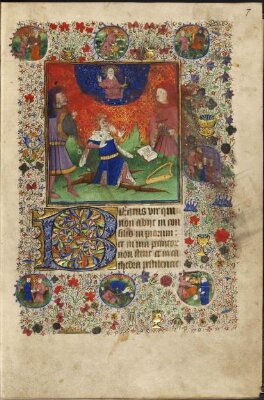 7
Beatus vir qui
non abijt in con
silio impiorum:
et in via peccator
non stetit et in ca
thedra pestilencie